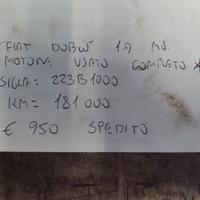 FIAT DOBLÒ 1.9 MJ.
MOTORE USATO COMPLETO *
SIGLA = 223B1000
KM = 181 000
€ 950 SPEDITO